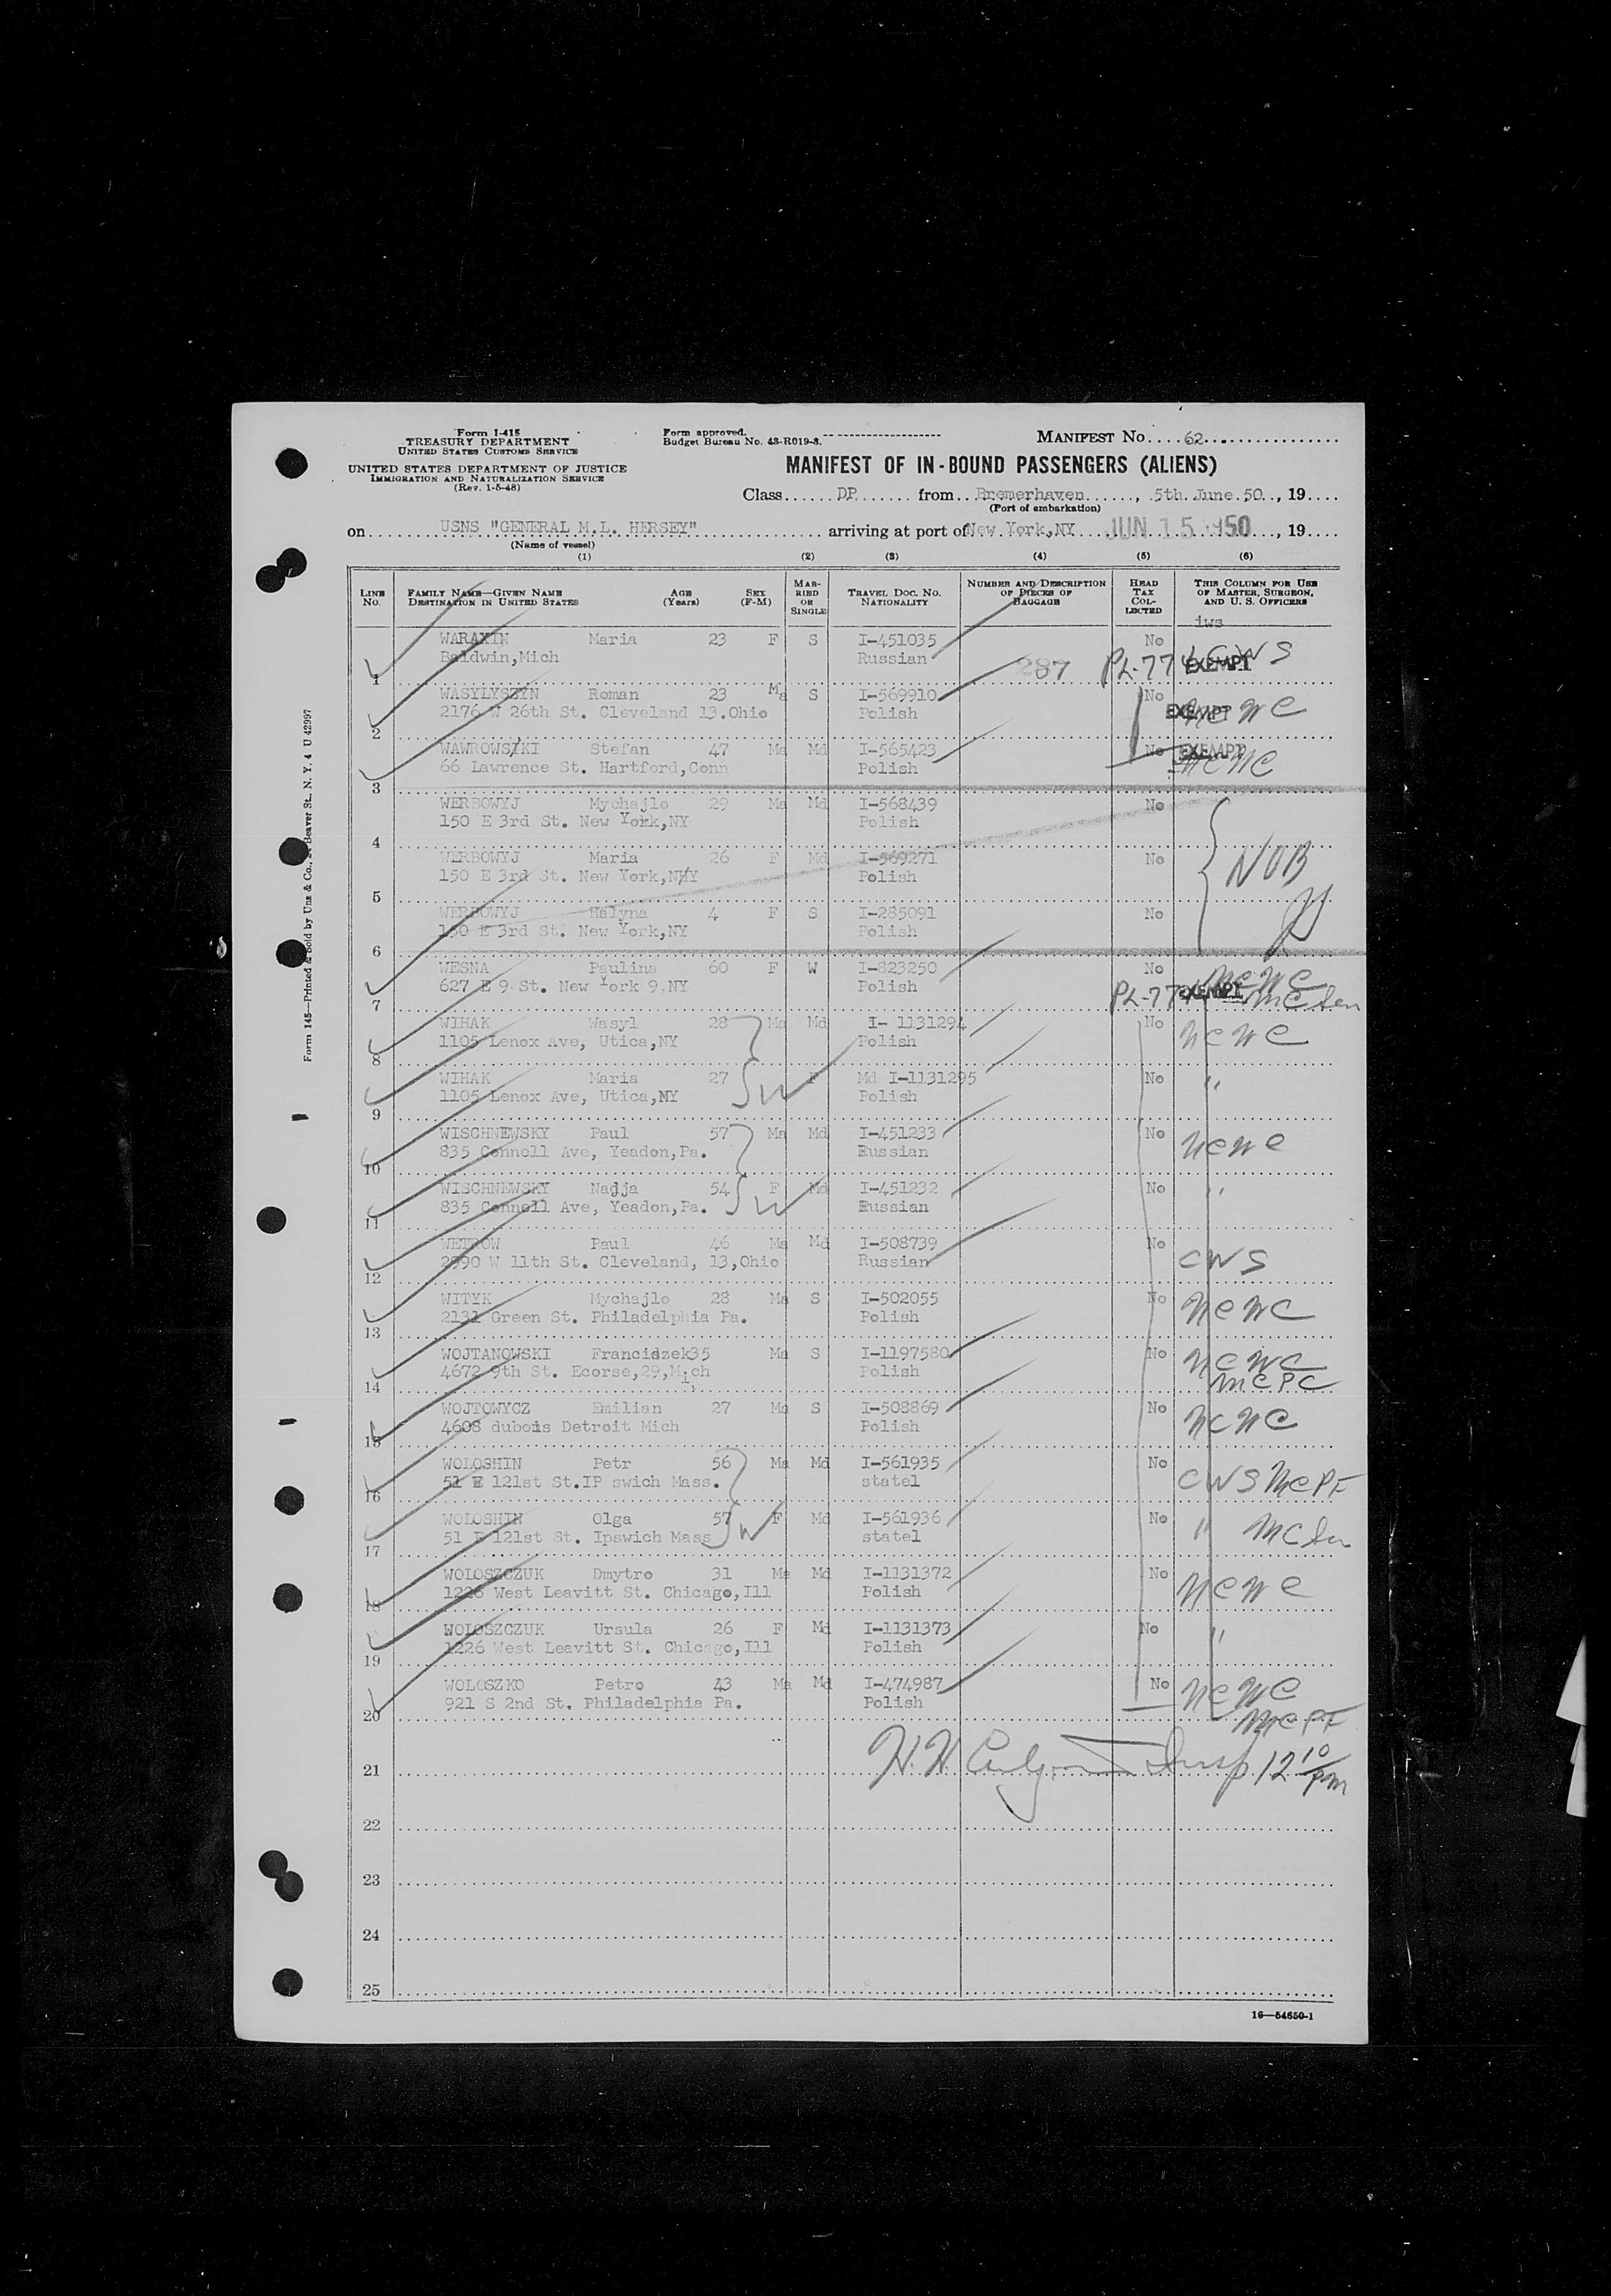 Form I-415
TREASURY DEPARTMENT
UNITED STATES CUSTOMS SERVICE
UNITED STATES DEPARTMENT OF JUSTICE
IMMIGRATION AND NATURALIZATION SERVICE
(Rev. 1-5-48)
Form approved.
Budget Bureau No. 43-R019-3.
MANIFEST No. 62
MANIFEST OF IN-BOUND PASSENGERS (ALIENS)
Class DP from Bremerhaven, 5th June 50, 19
(Port of embarkation)
on USNS "GENERAL M.L. HERSEY" arriving at port of New York, NY JUN 15 1950, 19
(Name of vessel)
(1) (2) (3) (4) (5) (6)
LINE No. FAMILY NAME—GIVEN NAME DESTINATION IN UNITED STATES AGE (Years) SEX (F-M) MARRIED OR SINGLE TRAVEL DOC. NO. NATIONALITY NUMBER AND DESCRIPTION OF PIECES OF BAGGAGE HEAD TAX COLLECTED THIS COLUMN FOR USE OF MASTER, SURGEON, AND U. S. OFFICERS
iws
WARAXIN Maria 23 F S I-451035 No
Baldwin,Mich Russian 287 PL-774 EXEMPT CWS
1
WASYLYSZYN Roman 23 Ma S I-569910 No
2176 W 26th St. Cleveland 13.Ohio Polish EXEMPT NCWC
2
WAWROWSIKI Stefan 47 Ma Md I-565423 No EXEMPT
66 Lawrence St. Hartford,Conn Polish NCWC
3
WERBOWYJ Mychajlo 29 Ma Md I-568439 No
150 E 3rd St. New York,NY Polish
4
WERBOWYJ Maria 26 F Md I-569271 No NOB
150 E 3rd St. New York,NY Polish
5
WERBOWYJ Halyna 4 F S I-285091 No
150 E 3rd St. New York,NY Polish
6
WESNA Paulina 60 F W I-823250 No NCWC
627 E 9 St. New York 9.NY Polish PL-774 EXEMPT
7
WIHAK Wasyl 28 Ma Md I- 1131294 No NCWC
1105 Lenox Ave, Utica,NY Polish
8
WIHAK Maria 27 F Md I-1131295 No "
1105 Lenox Ave, Utica,NY Polish
9
WISCHNEWSKY Paul 57 Ma Md I-451233 No NCWC
835 Connell Ave, Yeadon,Pa. Russian
10
WISCHNEWSKY Nadja 54 F Md I-451232 No "
835 Connell Ave, Yeadon,Pa. Russian
11
WETROW Paul 46 Ma Md I-508739 No CWS
2990 W 11th St. Cleveland, 13,Ohio Russian
12
WITYK Mychajlo 28 Ma S I-502055 No NCWC
2131 Green St. Philadelphia Pa. Polish
13
WOJTANOWSKI Francidzek 35 Ma S I-1197580 No NCWC
4672 9th St. Ecorse,29,Mich Polish MCPC
14
WOJTOWYCZ Emilian 27 Ma S I-508869 No NCWC
4608 dubois Detroit Mich Polish
15
WOLOSHIN Petr 56 Ma Md I-561935 No
51 E 121st St.IP swich Mass. statel CWS MCPF
16
WOLOSHIN Olga 57 F Md I-561936 No "
51 E 121st St. Ipswich Mass statel
17
WOLOSZCZUK Dmytro 31 Ma Md I-1131372 No NCWC
1226 West Leavitt St. Chicago,Ill Polish
18
WOLOSZCZUK Ursula 26 F Md I-1131373 No "
1226 West Leavitt St. Chicago,Ill Polish
19
WOLOSZKO Petro 43 Ma Md I-474987 No NCWC
921 S 2nd St. Philadelphia Pa. Polish MCPF
20
21 Insp 12 10 pm
22
23
24
25
16—54650-1
Form 145—Printed & Sold by Unz & Co., Beaver St., N. Y. 4 U 42997